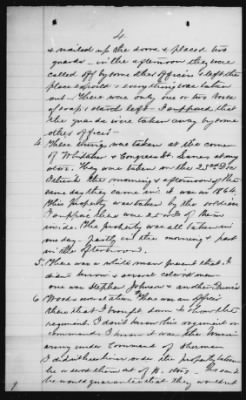 4
& nailed up the doors & placed two
guards – in the afternoon they were
called off by some other officer & left the
place & everything was taken
out – There was only one or two boxes
of soap & starch left – I supposed that
the guards were taken away by some
other officer –
4. These things was taken at the corner
of Whitaker & Congress St. Lanes at my
store. They was taken on the 21st Dec
between the morning & afternoon of the
same day they came in. It was in 1864.
This property was taken by the soldiers
I suppose there was as lots of them
inside. The property was all taken in
one day. Partly in the morning & part
in the afternoon.
5. There was a white man present that I
did know & several colored men
one was Stephen Johnson & another
6. Woods was taken. There was an officer
there that I brought down to show the
regiment. I don't know his regiment or
command. I know it was the Union
army under command of Sherman
I did the property taken
he & said
he would guarantee that they would not